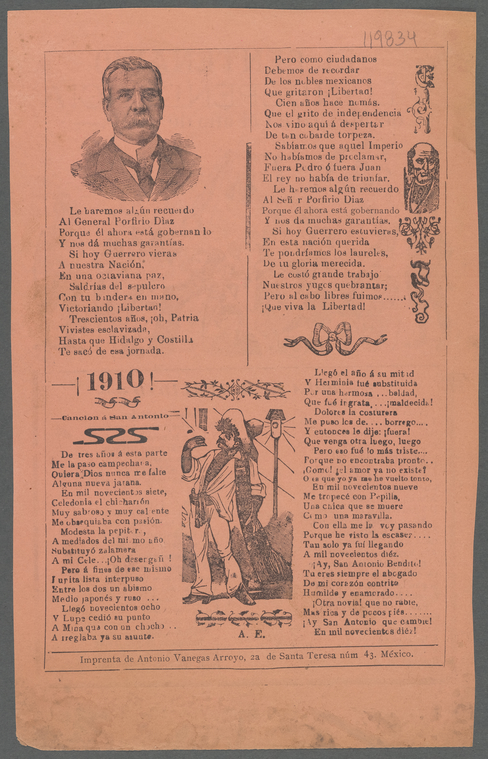 119834
Le haremos algún recuerdo
Al General Porfirio Diaz
Porque él ahora está gobernan lo
Y nos dá muchas garantías.
Si hoy Guerrero vieras
A nuestra Nación,
En una octaviana paz,
Saldrías del sepulcro
Con tu bandera en mano,
Victoriando ¡Libertad!
Trescientos años, ¡oh, Patria
Vivistes esclavizada,
Hasta que Hidalgo y Costilla
Te sacó de esa jornada.
Pero como ciudadanos
Debemos de recordar
De los nobles mexicanos
Que gritaron ¡Libertad!
Cien años hace nomás,
Que el grito de independencia
Nos vino aquí á despertar
De tan cobarde torpeza.
Sabíamos que aquel Imperio
No habíamos de proclamar,
Fuera Pedro ó fuera Juan
El rey no había de triunfar.
Le haremos algún recuerdo
Al Señ r Porfirio Diaz
Porque él ahora está gobernando
Y nos dá muchas garantías.
Si hoy Guerrero estuvieras,
En esta nación querida
Te pondríamos los laureles,
De tu gloria merecida.
Le costó grande trabajo
Nuestros yugos quebrantar;
Pero al cabo libres fuimos......
¡Que viva la Libertad!
—¡1910!—
Cancion á San Antonio
De tres años á esta parte
Me la paso campechana,
Quiera Dios nunca me falte
Alguna nueva jarana.
En mil novecientos siete,
Celedonia el chicharrón
Muy sabroso y muy caliente
Me obsequiaba con pasión.
Modesta la pepitor.,
A mediados del mismo año
Substituyó zalamera
A mi Cele...¡Oh desengañ !
Pero á fines de ese mismo
Jurita lista interpuso
Entre los dos un abismo
Medio japonés y ruso ...
Llegó novecientos ocho
Y Lupe cedió su punto
A Mina que con un chocho ..
A rreglaba ya su asunto.
A. E.
Llegó el año á su mitad
Y Herminia fué substituida
Por una hermosa ...beldad,
Que fué ingrata, ...¡maldecida!
Dolores la costurera
Me puso los de.... borrego....
Y entonces le dije: ¡fuera!
Que venga otra luego, luego
Pero eso fué lo más triste....
Porque no encontraba pronto..
¡Como! ¿el amor ya no existe?
O es que yo ya me he vuelto tonto,
En mil novecientos nueve
Me tropecé con Pepilla,
Una chica que se mueve
Como una maravilla.
Con ella me la voy pasando
Porque he visto la escasez....
Tan solo ya fuí llegando
A mil novecientos diéz.
¡Ay, San Antonio Bendito!
Tu eres siempre el abogado
De mi corazón contrito
Humilde y enamorado....
¡Otra novia! que no rabie,
Mas rica y de pocos piés.......
¡Ay San Antonio que cambie!
En mil novecientos diéz!
Imprenta de Antonio Vanegas Arroyo, 2a de Santa Teresa núm 43. México.